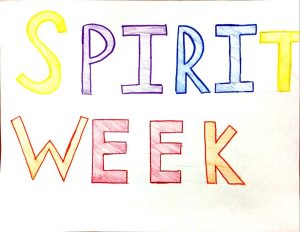 SPIRIT
WEEK